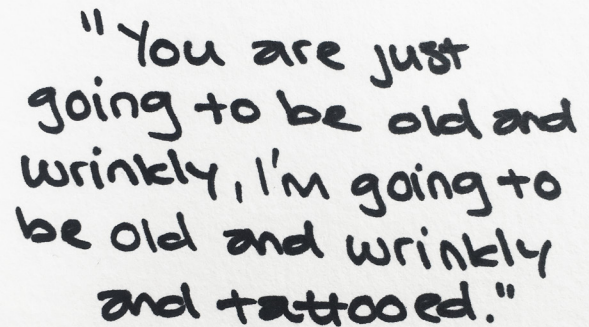 "You are just
going to be old and
wrinkly, I'm going to
be old and wrinkly
and tattooed."